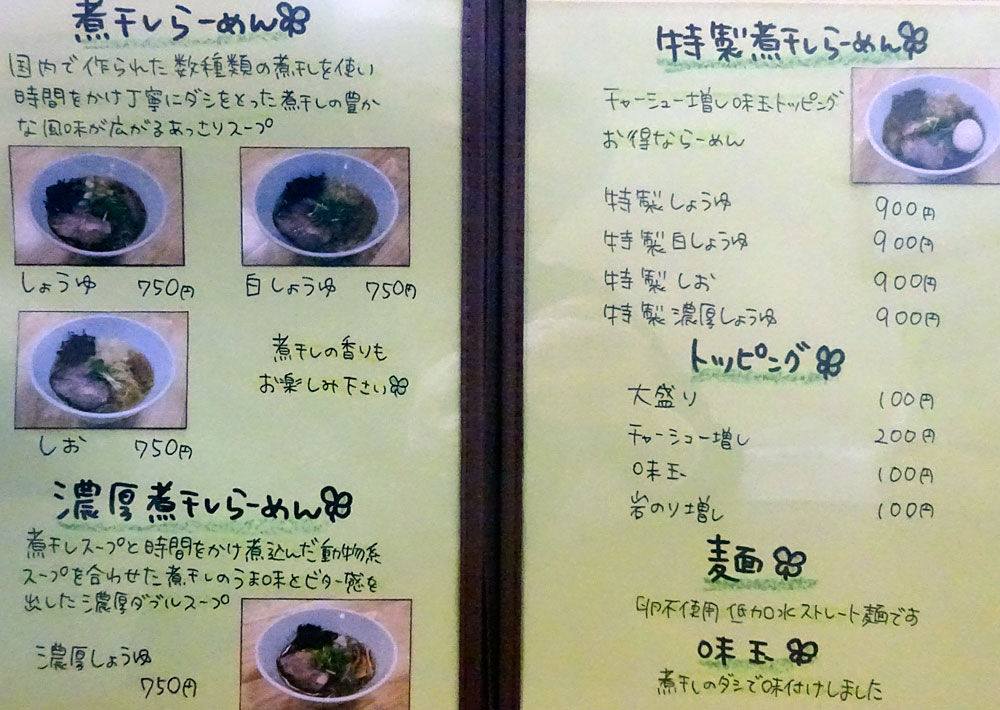 煮干しらーめん
国内で作られた数種類の煮干しを使い
時間をかけ丁寧にダシをとった煮干しの豊か
な風味が広がるあっさりスープ
しょうゆ 750円
白しょうゆ 750円
しお 750円
煮干しの香りも
お楽しみ下さい
濃厚煮干しらーめん
煮干しスープと時間をかけ煮込んだ動物系
スープを合わせた煮干しのうま味とビター感を
出した濃厚ダブルスープ
濃厚しょうゆ
750円
特製煮干しらーめん
チャーシュー増し味玉トッピング
お得ならーめん
特製しょうゆ 900円
特製白しょうゆ 900円
特製しお 900円
特製濃厚しょうゆ 900円
トッピング
大盛り 100円
チャーシュー増し 200円
味玉 100円
岩のり増し 100円
麺
卵不使用低加水ストレート麺です
味玉
煮干しのダシで味付けしました